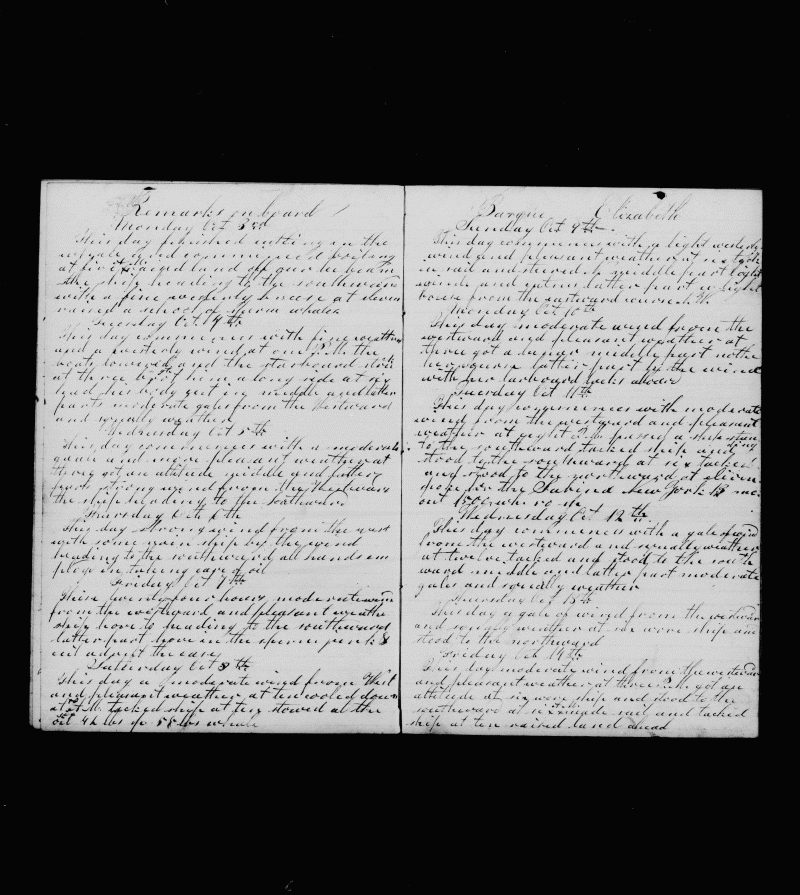 Remarks on board
Monday Oct 3rd
This day finished cutting in the
whale and commenced boiling
at five land off our lee beam
the ship heading to the southward
with a fine westerly breeze at eleven
raised a school of sperm whales
Tuesday Oct 4th
This day commences with fine weather
and a westerly wind at one P.M. the
boats lowered and the starboard struck
at three him along side at six
had his body middle and latter
parts moderate gales from the Westward
and squally weather
Wednesday Oct 5th
This day commences with a moderate
gale and more pleasant weather at
three got an altitude middle and latter
parts strong wind from the Westward
the ship heading to the Southward
Thursday Oct 6th
This day strong wind from the west
with some rain ship by the wind
heading to the southward all hands em
ploye in taking care of oil
Friday Oct 7th
These twenty four hours moderate wind
from the westward and pleasant weather
ship hove to heading to the southward
latter part hove in the sperm junk &
Saturday Oct 8th
This day a moderate wind from West
and pleasant weather at ten cooled down
at M. tacked ship at ten stowed all the
oil 42 bbls sp. 55 bbls whale
Barque Elizabeth
Sunday Oct 9th
This day commences with a light westerly
wind and pleasant weather at six took
in sail and steered middle part light
winds and latter part a light
breeze from the eastward
Monday Oct 10th
This day moderate wind from the
westward and pleasant weather at
three got a middle part
latter part by the wind
with her larboard tacks aboard
Tuesday Oct 11th
This day commences with moderate
wind from the westward and pleasant
weather at eight P.M. passed a ship stan
ding
to the southward tacked ship and
stood to the southward at six tacked
and stood to the northward at eleven
spoke the Sabina New York 13 mo.
out 1500 wh. no sp.
Wednesday Oct 12th
This day commences with a gale of wind
from the westward and squally weather
at twelve tacked and stood to the south
ward middle and latter part moderate
gales and squally weather
Thursday Oct 13th
This day a gale of wind from the westward
and squally weather at six wore ship and
stood to the northward
Friday Oct 14th
This day moderate wind from the westward
and pleasant weather at three P.M. got an
altitude at six wore ship and stood to the
southward at six made sail and tacked
ship at ten raised land ahead